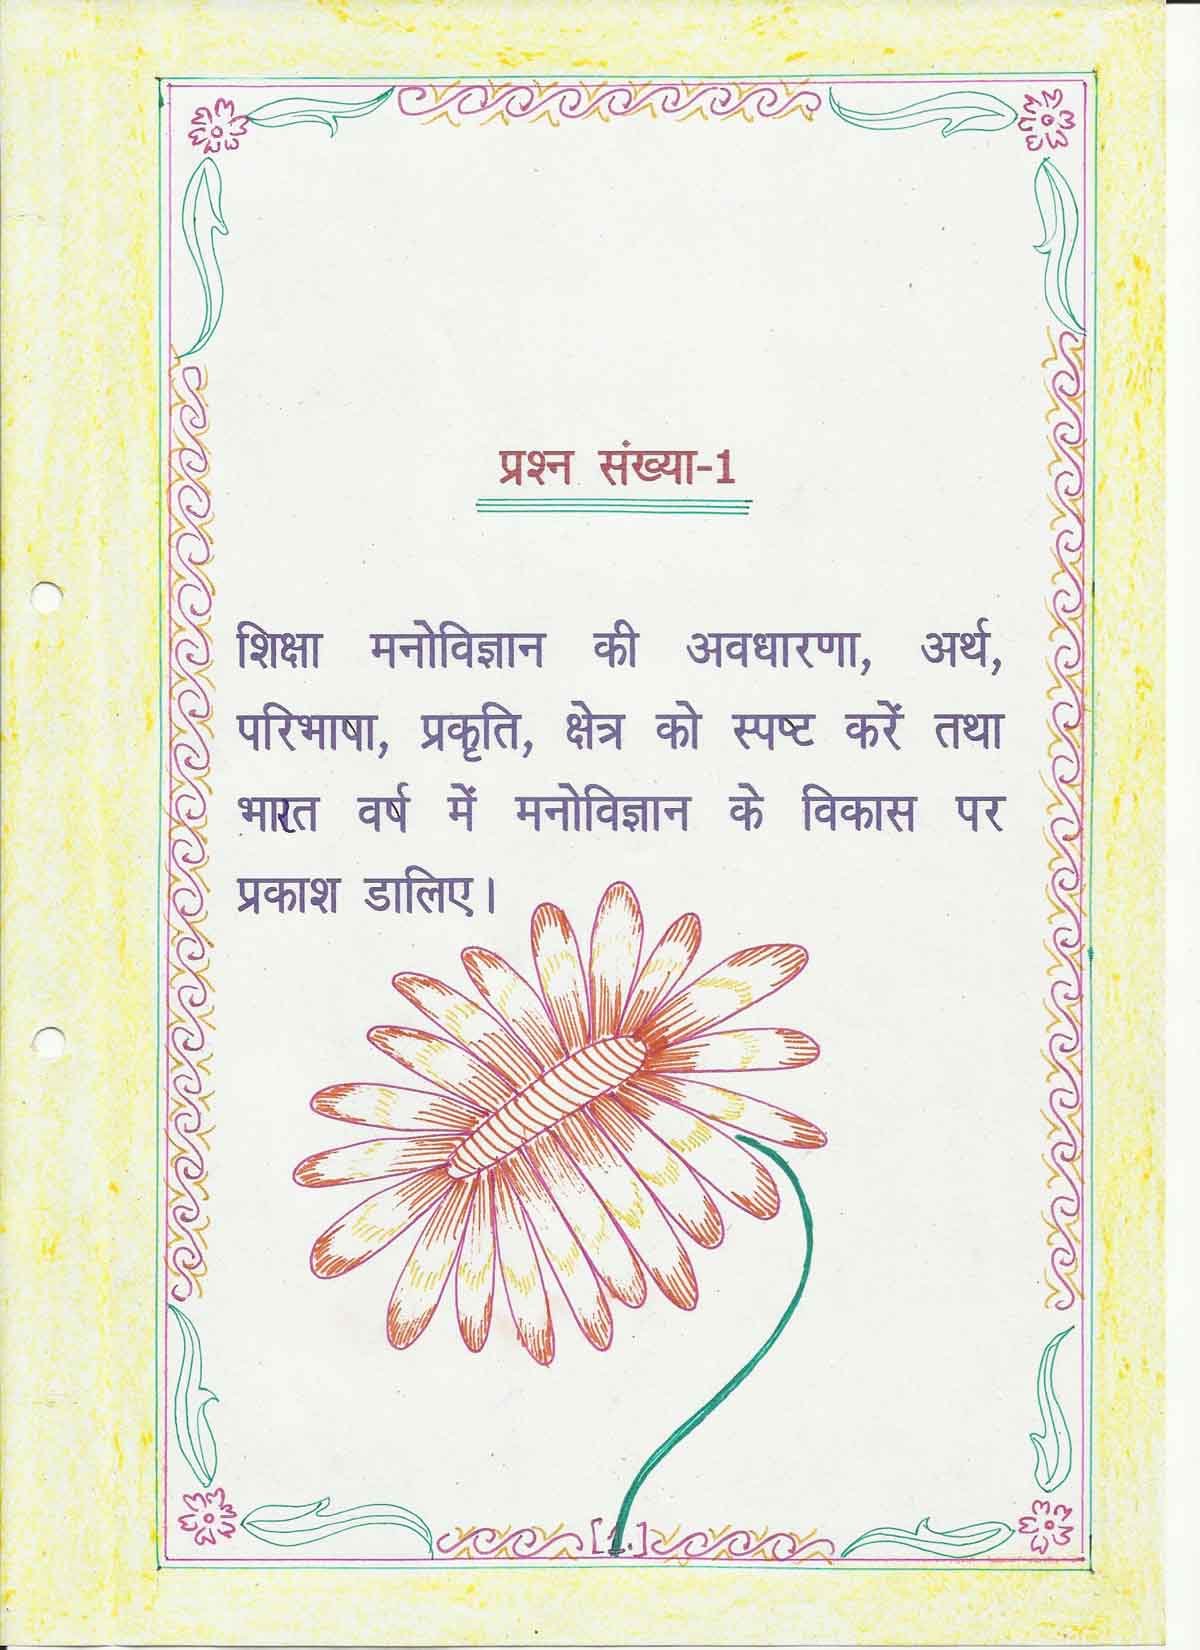 प्रश्न संख्या-1
शिक्षा मनोविज्ञान की अवधारणा, अर्थ,
परिभाषा, प्रकृति, क्षेत्र को स्पष्ट करें तथा
भारत वर्ष में मनोविज्ञान के विकास पर
प्रकाश डालिए।
[1.]